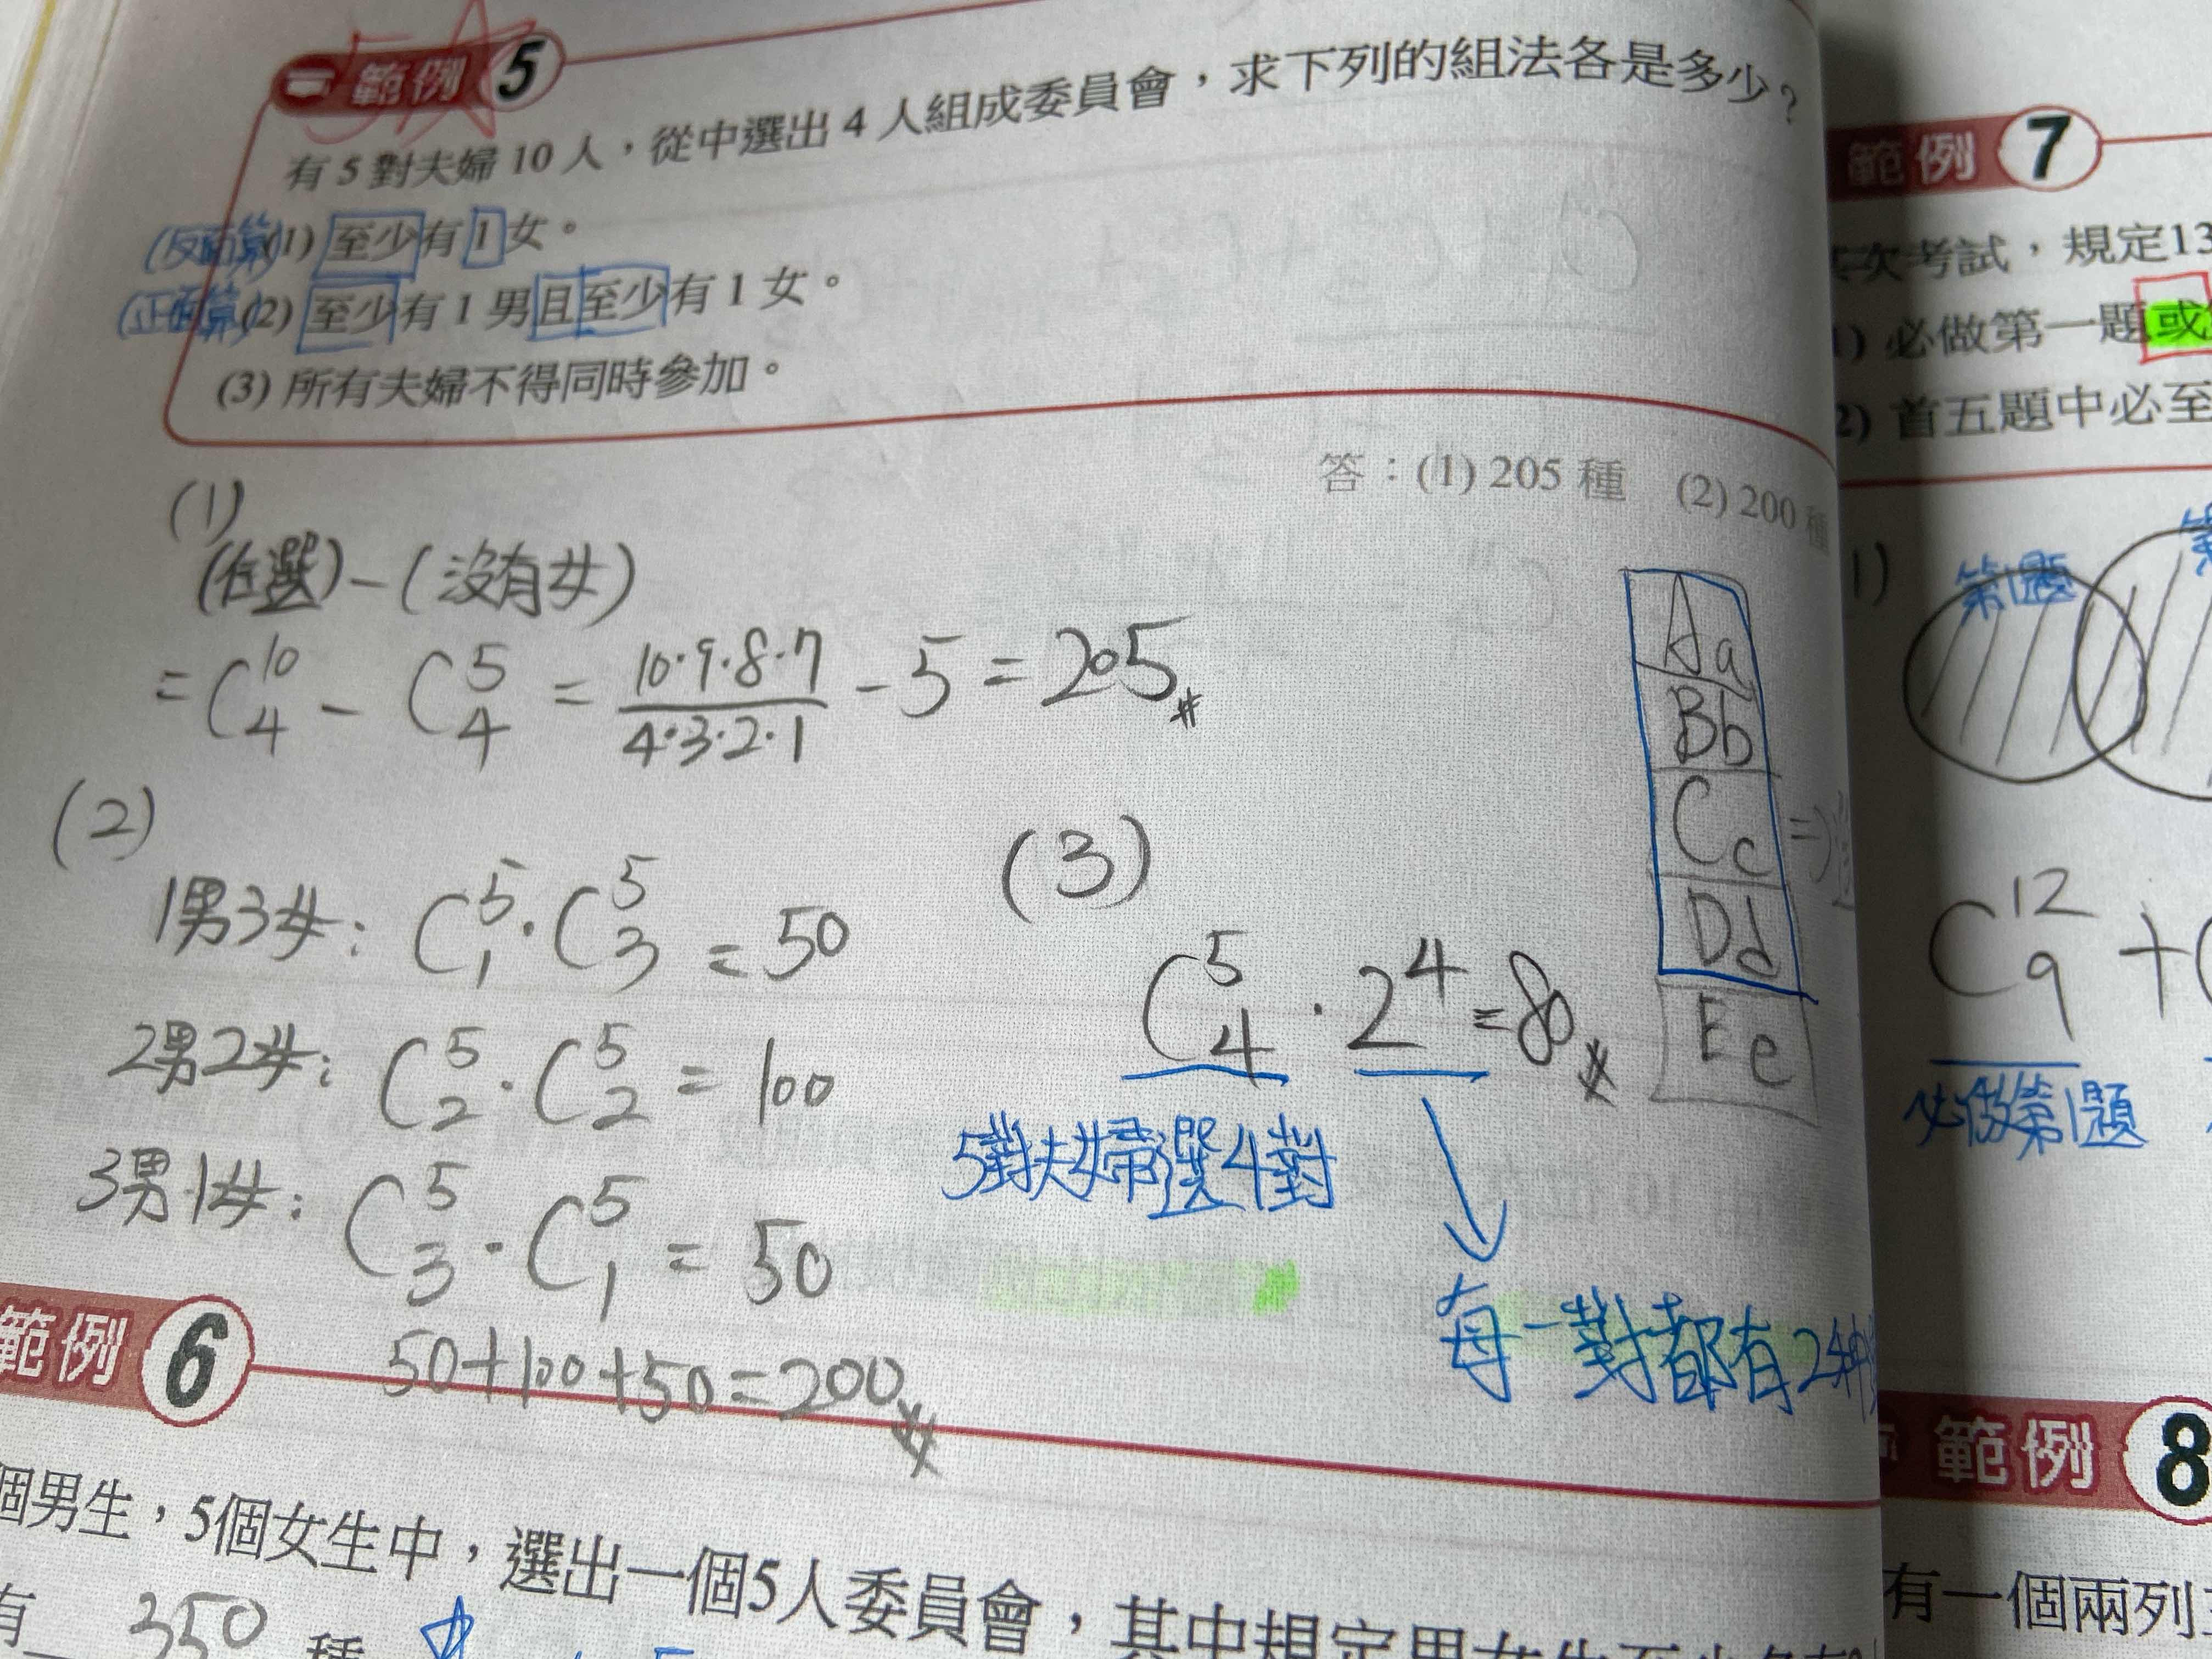 範例 5
有 5 對夫婦 10 人，從中選出 4 人組成委員會，求下列的組法各是多少？
(反面算) (1) 至少有 1 女。
(正面算) (2) 至少有 1 男且至少有 1 女。
(3) 所有夫婦不得同時參加。
答：(1) 205 種 (2) 200 種
(1)
(任選)－(沒有女)
= C^10_4 - C^5_4 = 10·9·8·7/4·3·2·1 - 5 = 205
(2)
1男3女: C^5_1 · C^5_3 = 50
2男2女: C^5_2 · C^5_2 = 100
3男1女: C^5_3 · C^5_1 = 50
50+100+50=200
(3)
C^5_4 · 2^4 = 80
5對夫婦選4對
每一對都有2種
Aa
Bb
Cc
Dd
Ee
範例 6
個男生，5個女生中，選出一個5人委員會，其中規定男女生至少各有
有 350 種
範例 7
次考試，規定13
1) 必做第一題或
2) 首五題中必至
1)
第1題
C^12_9 +
必做第1題
範例 8
有一個兩列